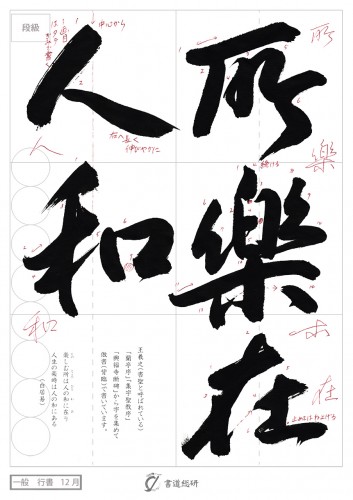 所樂在
人和
段級
中心から
右へ長く
伸びやかに
王羲之(書聖と呼ばれている)
「蘭亭序」「集字聖教序」
「興福寺断碑」から字を集めて
倣書(背臨)で書いています。
楽しむ所は人の和に在り
人生の楽時は人の和にある
一般 行書 12月
書道総研